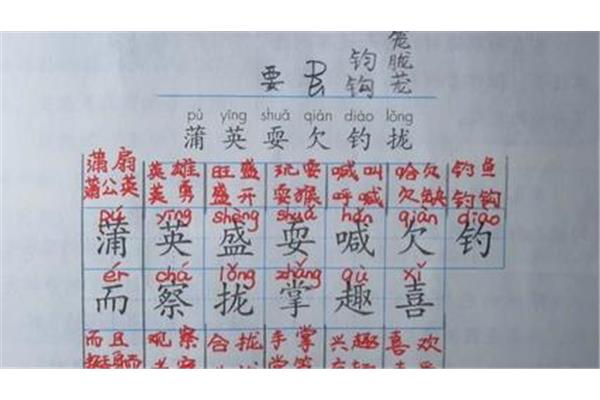 笼胧茏
钧
要 钩
pú yīng shuǎ qiàn diào lǒng
蒲 英 耍 欠 钓 拢
蒲扇 英雄 旺盛 玩耍 喊叫 哈欠 钓鱼
蒲公英 英勇 盛开 耍猴 呼喊 欠缺 钓钩
pú yīng shèng shuǎ hǎn qiàn diào
蒲 英 盛 耍 喊 欠 钓
ér chá lǒng zhǎng qù xǐ
而 察 拢 掌 趣 喜
而且 观察 合拢 手掌 兴趣 喜欢